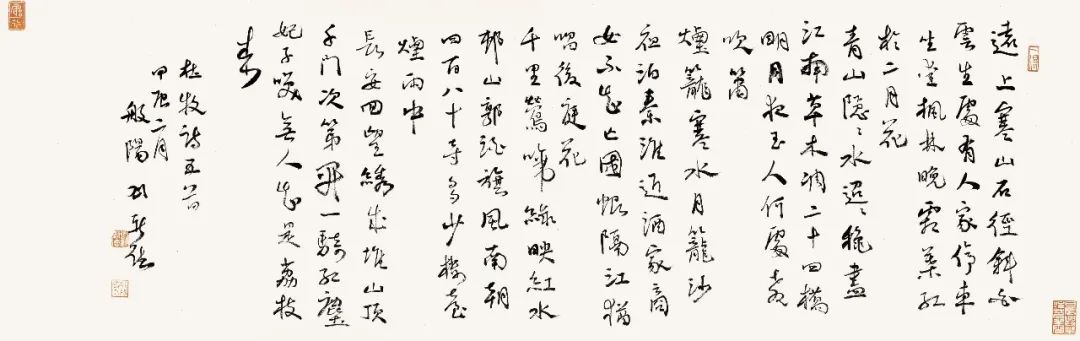 遠上寒山石徑斜白
雲生處有人家停車
坐愛楓林晚霜葉紅
於二月花
青山隱〻水迢〻秋盡
江南草木凋二十四橋
明月夜玉人何處教
吹簫
煙籠寒水月籠沙
夜泊秦淮近酒家商
女不知亡國恨隔江猶
唱後庭花
千里鶯啼綠映紅水
邨山郭酒旗風南朝
四百八十寺多少樓臺
煙雨中
長安回望繡成堆山頂
千門次第開一騎紅塵
妃子笑無人知是荔枝
來
杜牧詩五首
甲辰二月
般陽